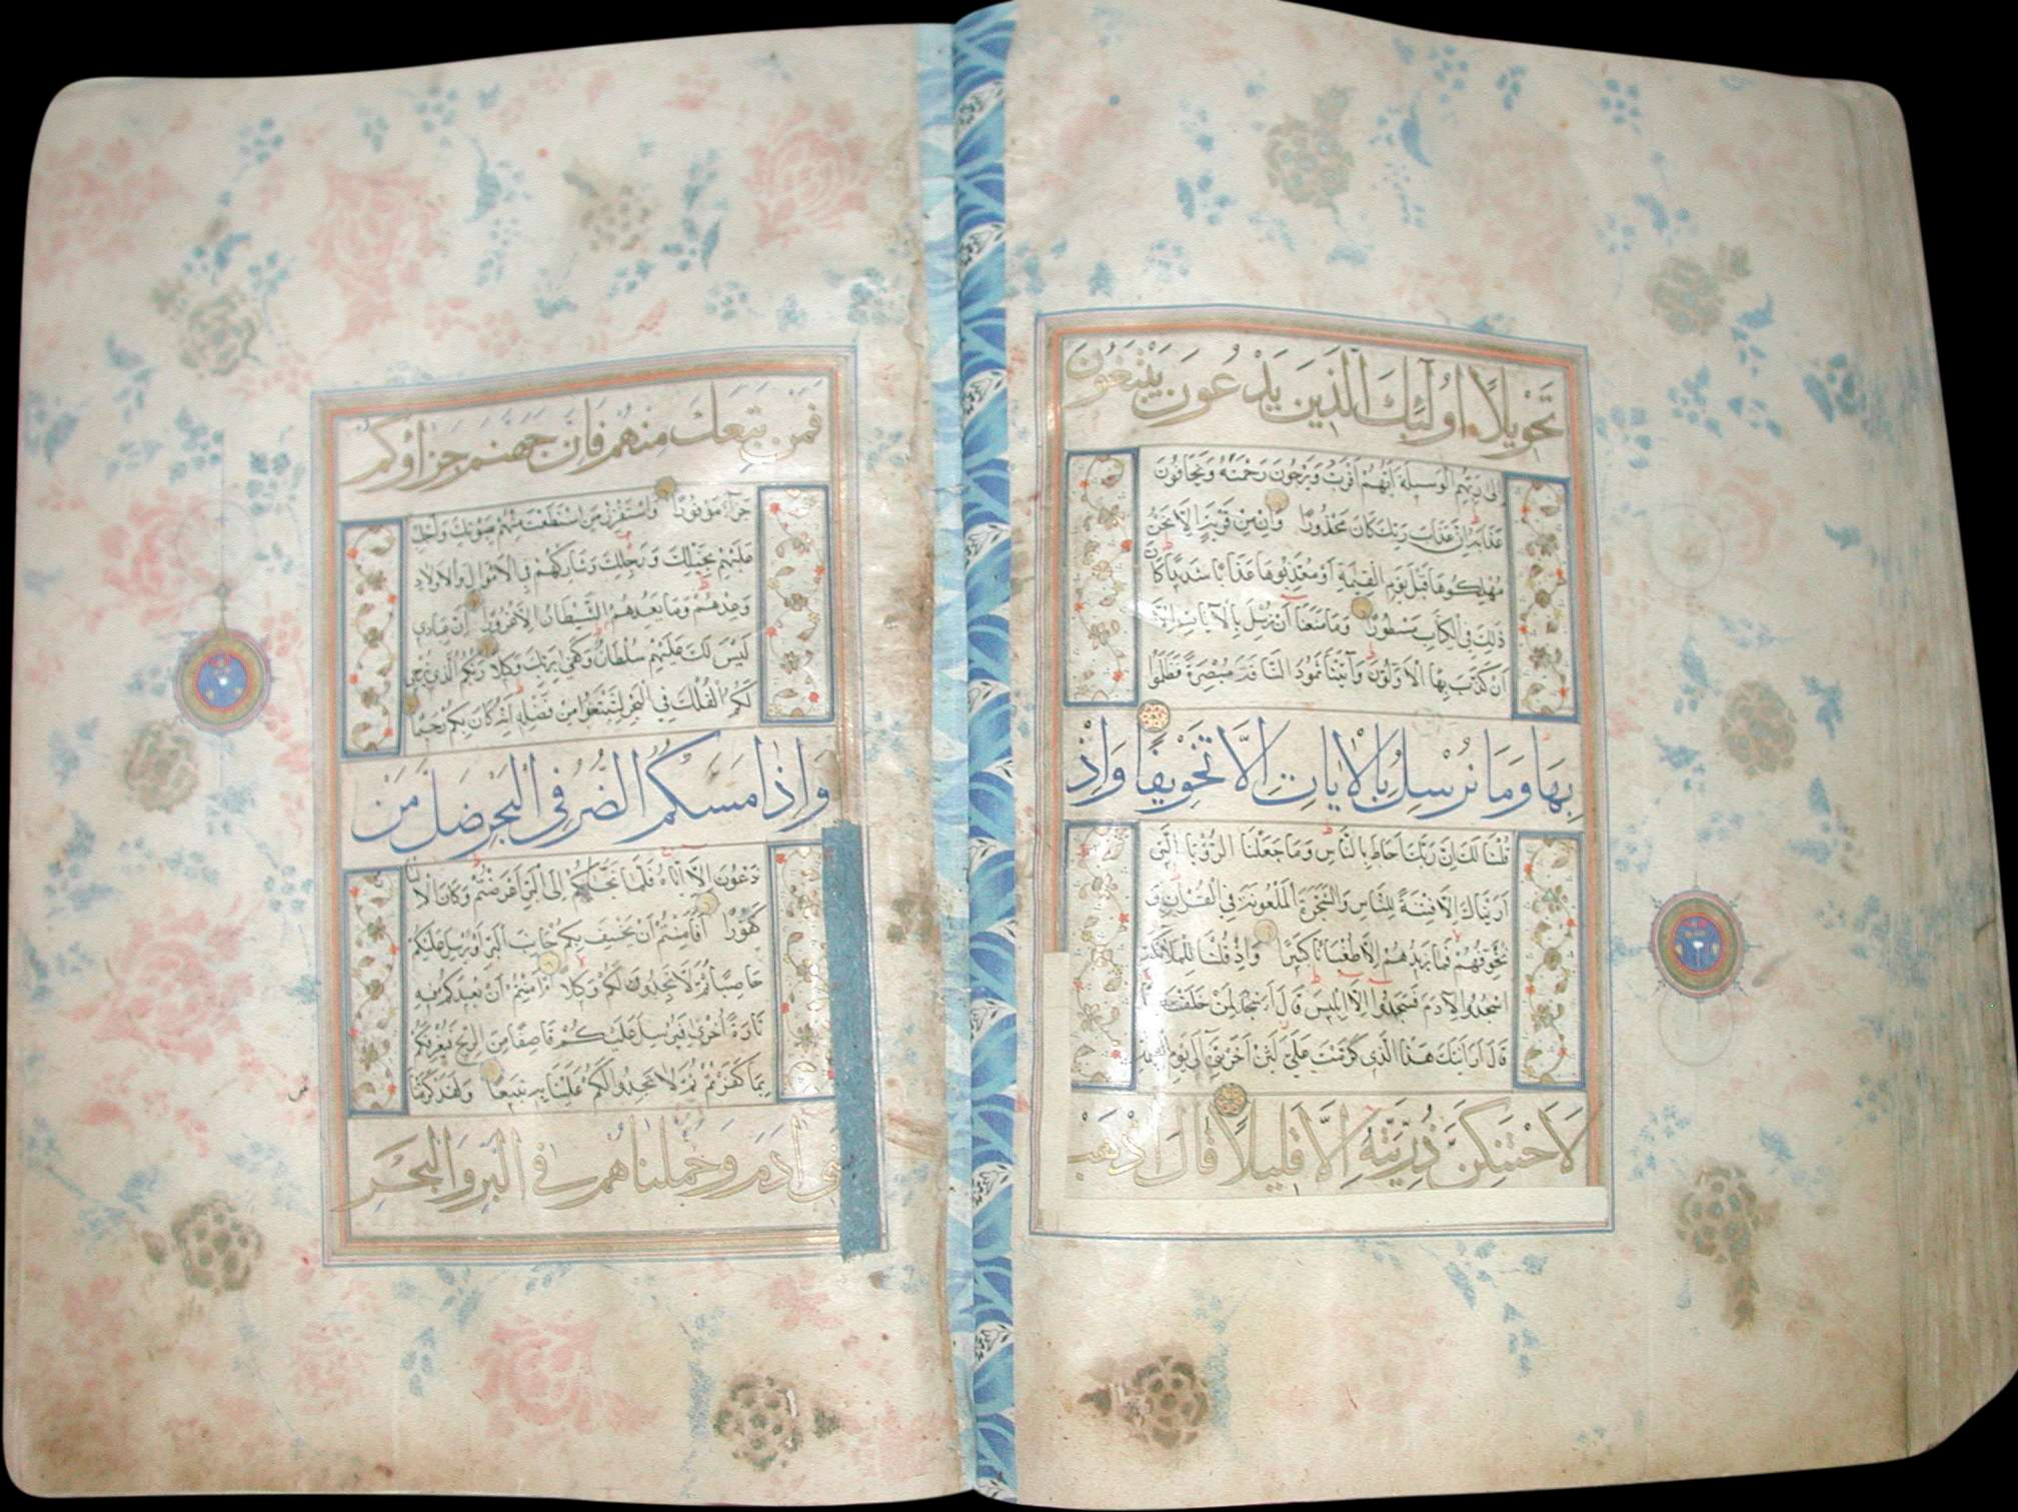 تَحْوِيلًا أُولَئِكَ الَّذِينَ يَدْعُونَ يَبْتَغُونَ
إِلَى رَبِّهِمُ الْوَسِيلَةَ أَيُّهُمْ أَقْرَبُ وَيَرْجُونَ رَحْمَتَهُ وَيَخَافُونَ
عَذَابَهُ إِنَّ عَذَابَ رَبِّكَ كَانَ مَحْذُورًا وَإِنْ مِنْ قَرْيَةٍ إِلَّا نَحْنُ
مُهْلِكُوهَا قَبْلَ يَوْمِ الْقِيٰمَةِ أَوْ مُعَذِّبُوهَا عَذَابًا شَدِيدًا كَانَ
ذَلِكَ فِي الْكِتَابِ مَسْطُورًا وَمَا مَنَعَنَا أَنْ نُرْسِلَ بِالْآيَاتِ إِلَّا
أَنْ كَذَّبَ بِهَا الْأَوَّلُونَ وَآتَيْنَا ثَمُودَ النَّاقَةَ مُبْصِرَةً فَظَلَمُوا
بِهَا وَمَا نُرْسِلُ بِالْآيَاتِ إِلَّا تَخْوِيفًا وَإِذْ
قُلْنَا لَكَ إِنَّ رَبَّكَ أَحَاطَ بِالنَّاسِ وَمَا جَعَلْنَا الرُّؤْيَا الَّتِي
أَرَيْنَاكَ إِلَّا فِتْنَةً لِلنَّاسِ وَالشَّجَرَةَ الْمَلْعُونَةَ فِي الْقُرْآنِ وَ
نُخَوِّفُهُمْ فَمَا يَزِيدُهُمْ إِلَّا طُغْيَانًا كَبِيرًا وَإِذْ قُلْنَا لِلْمَلَائِكَةِ
اسْجُدُوا لِآدَمَ فَسَجَدُوا إِلَّا إِبْلِيسَ قَالَ أَأَسْجُدُ لِمَنْ خَلَقْتَ
قَالَ أَرَأَيْتَكَ هَذَا الَّذِي كَرَّمْتَ عَلَيَّ لَئِنْ أَخَّرْتَنِي إِلَى يَوْمِ الْقِيٰمَةِ
لَأَحْتَنِكَنَّ ذُرِّيَّتَهُ إِلَّا قَلِيلًا قَالَ اذْهَبْ
فَمَنْ تَبِعَكَ مِنْهُمْ فَإِنَّ جَهَنَّمَ جَزَاؤُكُمْ
جَزَاءً مَوْفُورًا وَاسْتَفْزِزْ مَنِ اسْتَطَعْتَ مِنْهُمْ بِصَوْتِكَ وَأَجْلِبْ
عَلَيْهِمْ بِخَيْلِكَ وَرَجِلِكَ وَشَارِكْهُمْ فِي الْأَمْوَالِ وَالْأَوْلَادِ
وَعِدْهُمْ وَمَا يَعِدُهُمُ الشَّيْطَانُ إِلَّا غُرُورًا إِنَّ عِبَادِي
لَيْسَ لَكَ عَلَيْهِمْ سُلْطَانٌ وَكَفَى بِرَبِّكَ وَكِيلًا رَبُّكُمُ الَّذِي يُزْجِي
لَكُمُ الْفُلْكَ فِي الْبَحْرِ لِتَبْتَغُوا مِنْ فَضْلِهِ إِنَّهُ كَانَ بِكُمْ رَحِيمًا
وَإِذَا مَسَّكُمُ الضُّرُّ فِي الْبَحْرِ ضَلَّ مَنْ
تَدْعُونَ إِلَّا إِيَّاهُ فَلَمَّا نَجَّاكُمْ إِلَى الْبَرِّ أَعْرَضْتُمْ وَكَانَ الْإِنْسَانُ
كَفُورًا أَفَأَمِنْتُمْ أَنْ يَخْسِفَ بِكُمْ جَانِبَ الْبَرِّ أَوْ يُرْسِلَ عَلَيْكُمْ
حَاصِبًا ثُمَّ لَا تَجِدُوا لَكُمْ وَكِيلًا أَمْ أَمِنْتُمْ أَنْ يُعِيدَكُمْ فِيهِ
تَارَةً أُخْرَى فَيُرْسِلَ عَلَيْكُمْ قَاصِفًا مِنَ الرِّيحِ فَيُغْرِقَكُمْ
بِمَا كَفَرْتُمْ ثُمَّ لَا تَجِدُوا لَكُمْ عَلَيْنَا بِهِ تَبِيعًا وَلَقَدْ كَرَّمْنَا
بَنِي آدَمَ وَحَمَلْنَاهُمْ فِي الْبَرِّ وَالْبَحْرِ